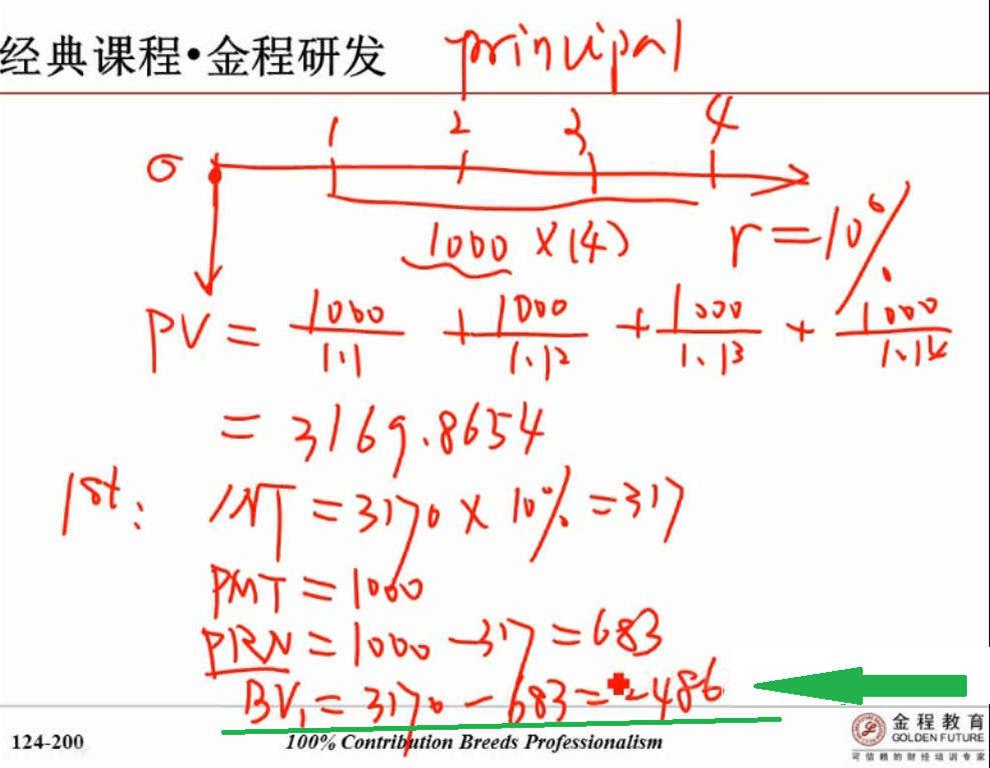 经典课程•金程研发
principal
0 1 2 3 4
1000 × (4) r = 10%
PV = 1000/1.1 + 1000/1.1² + 1000/1.1³ + 1000/1.1⁴
= 3169.8654
1st: INT = 3170 × 10% = 317
PMT = 1000
PRN = 1000 - 317 = 683
BV₁ = 3170 - 683 = 2486
124-200
100% Contribution Breeds Professionalism
金程教育
GOLDEN FUTURE
可信赖的财经培训专家